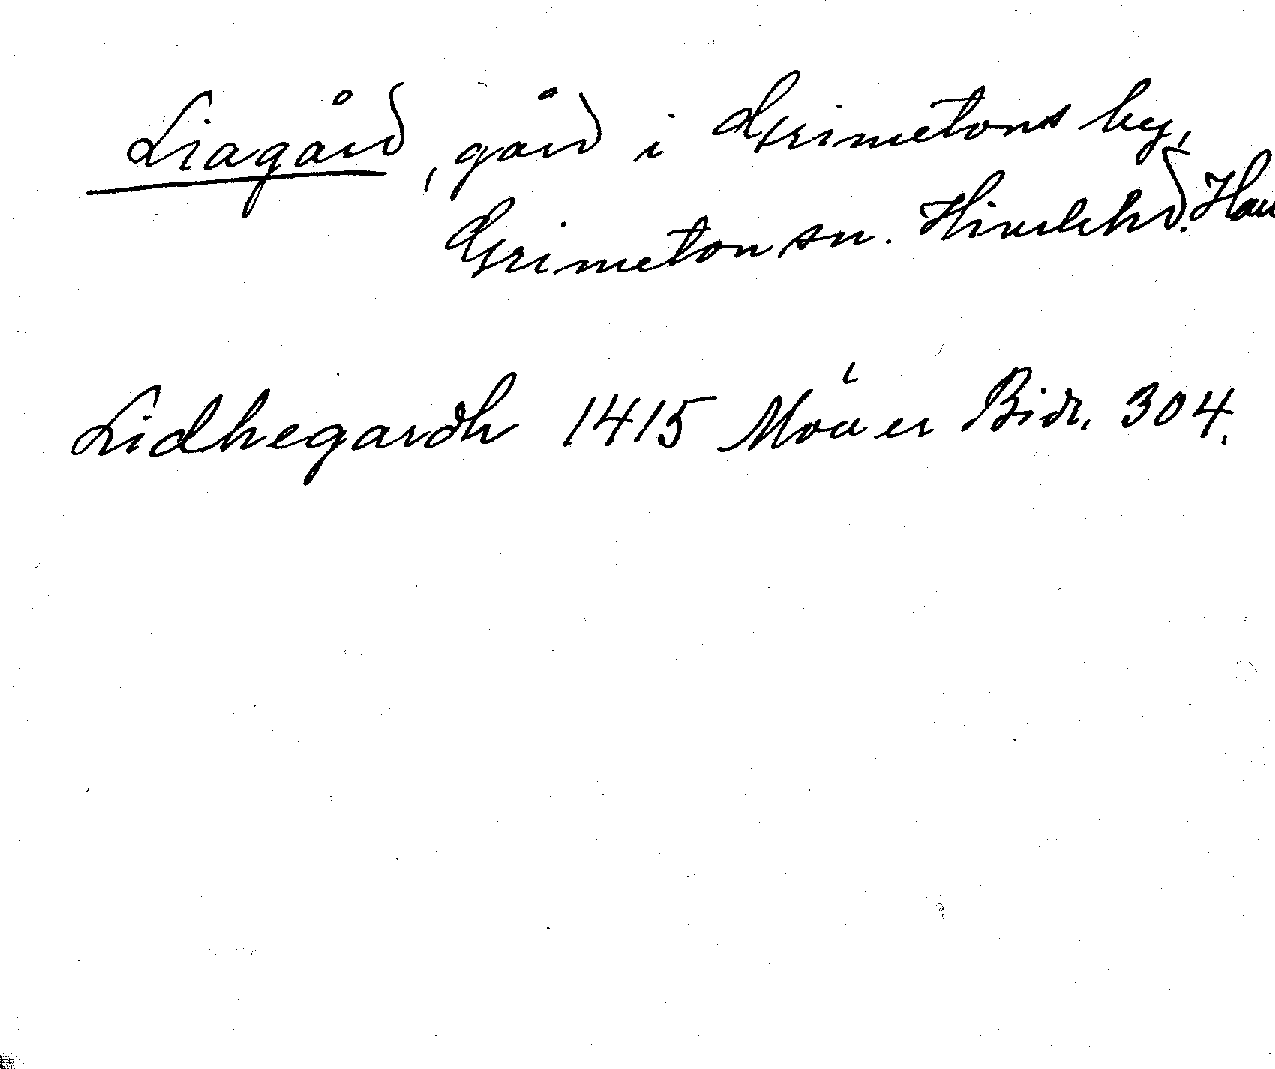 Liagård, gård i Grimetons by,
Grimeton sn. Himlehd. Hal
Lidhegardh 1415 Bidr. 304.